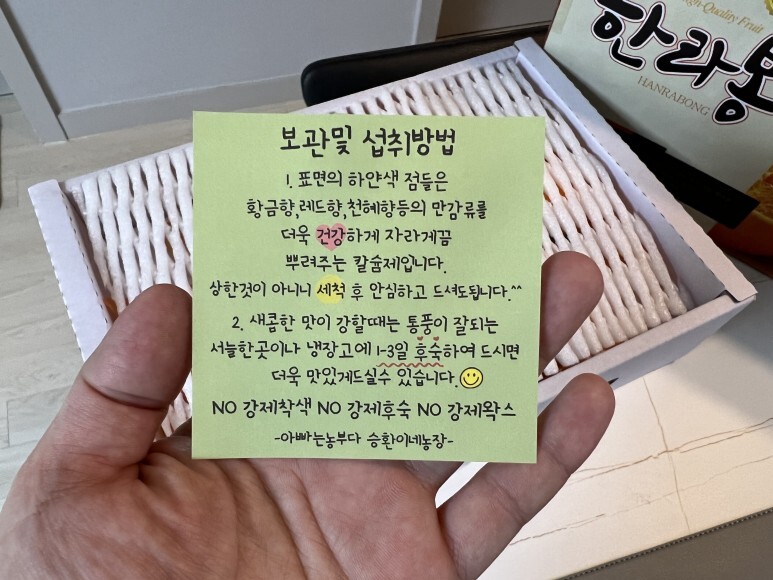 High-Quality Fruit
한라봉
HANRABONG
보관및 섭취방법
1. 표면의 하얀색 점들은
황금향,레드향,천혜향등의 만감류를
더욱 건강하게 자라게끔
뿌려주는 칼슘제입니다.
상한것이 아니니 세척 후 안심하고 드셔도됩니다.^^
2. 새콤한 맛이 강할때는 통풍이 잘되는
서늘한곳이나 냉장고에 1-3일 후숙하여 드시면
더욱 맛있게드실수 있습니다.
NO 강제착색 NO 강제후숙 NO 강제왁스
-아빠는농부다 승환이네농장-